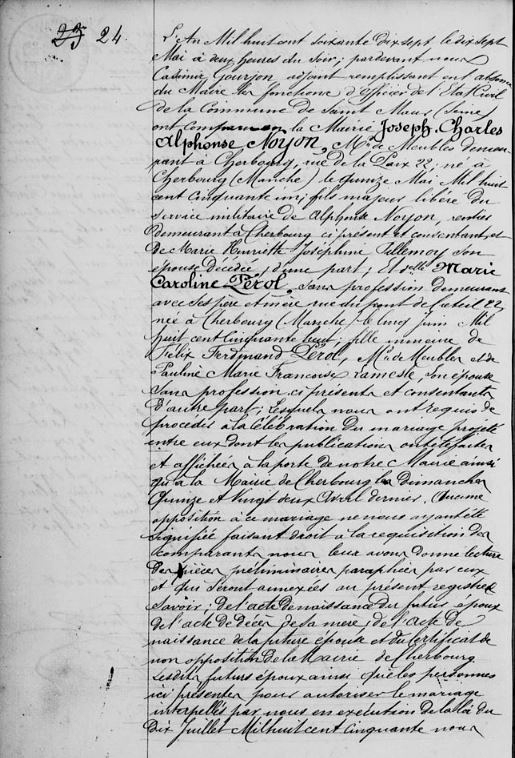 23 24.
L'An Mil huit cent soixante dix sept, le dix sept
Mai à deux heures du soir; pardevant nous
Casimir Gourjon adjoint remplissant en l'absence
du Maire les fonctions d'Officier de l'Etat Civil
de la Commune de Saint Maur (Seine)
ont comparu en la Mairie, Joseph-Charles
Alphonse Noyon, Md de Meubles demeu
rant à Cherbourg, rue de la Paix 22, né à
Cherbourg (Manche) le quinze Mai Mil huit
cent cinquante un; fils majeur libéré du
service militaire de Noyon, rentier
demeurant à Cherbourg ci présent et consentant et
de Marie Henriette Joséphine son
épouse décédée, d'une part; et Delle Marie
Caroline Pérol, sans profession demeurant
avec ses père et mère rue du pont de Créteil 22
née à Cherbourg (Manche) le cinq juin Mil
huit cent cinquante, fille mineure de
Félix Ferdinand Pérol, Md de Meubles et de
Pauline Marie Françoise Lameste, son épouse
sans profession ci présents et consentants
d'autre part; Lesquels nous ont requis de
procéder à la célébration du mariage projeté
entre eux dont les publications ont été faites
et affichées à la porte de notre Mairie ainsi
qu'à la Mairie de Cherbourg les Dimanches
Quinze et Vingt deux Avril dernier. Aucune
opposition à ce mariage ne nous ayant été
signifiée faisant droit à la requisition des
comparants nous leur avons donné lecture
des pièces préliminaires paraphées par eux
et qui seront annexées au présent registre
savoir; de l'acte de naissance du futur époux
de l'acte de décès de sa mère, de l'acte de
naissance de la future épouse et du certificat de
non opposition de la Mairie de Cherbourg
Lesdits futurs époux ainsi que les personnes
ici présentes pour autoriser le mariage
interpellés par nous en exécution de la loi du
Dix Juillet Mil huit cent cinquante nous